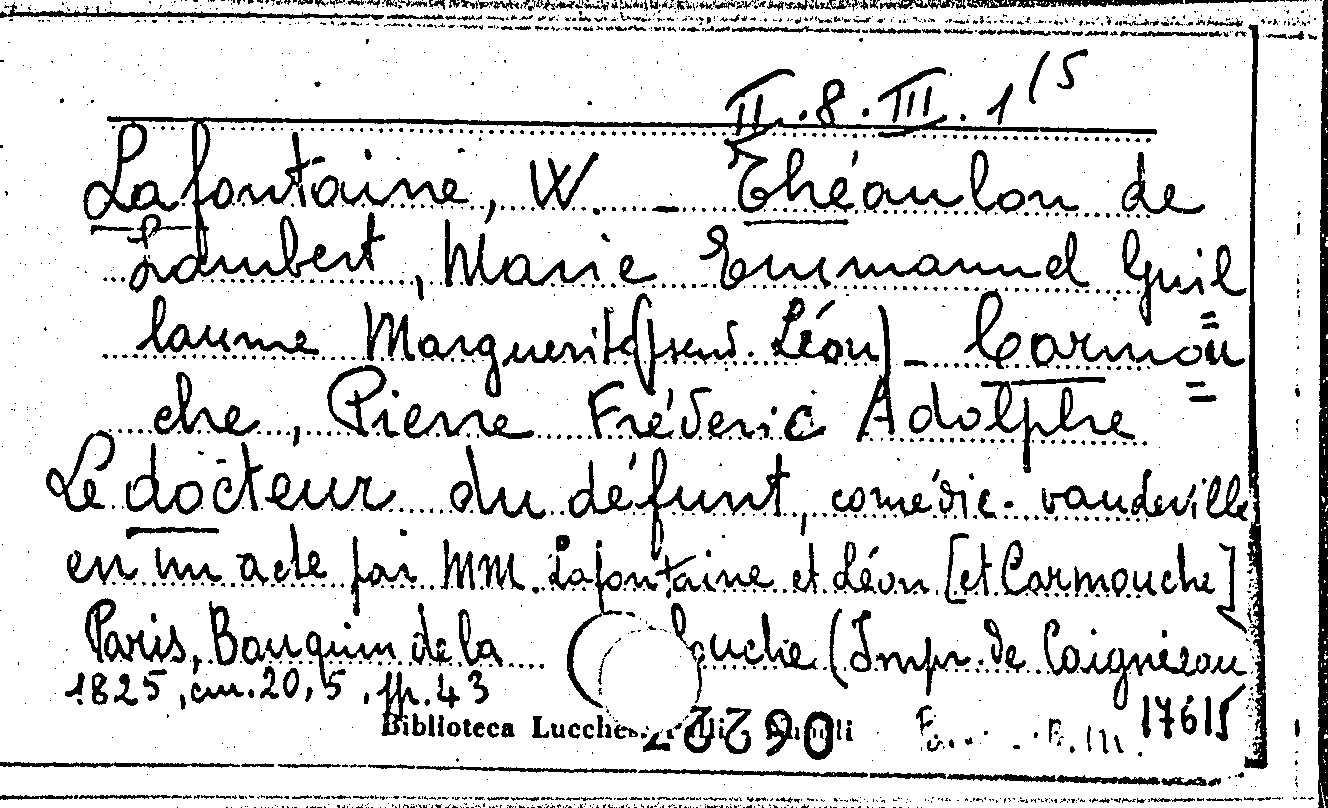 II.8.III.1 15
Lafontaine, W. - Théaulon de
Lambert, Marie Emmanuel Guil
laume Marguerite (pseud. Léon) - Carmou=
che, Pierre Fréderic Adolphe
Le docteur du défunt, comédie-vaudeville
en un acte par MM. Lafontaine et Léon [et Carmouche]
Paris, Bouquin de la Souche (Impr. de Coigniezou
1825, cm. 20,5, pp. 43
Biblioteca Lucchesi
17615